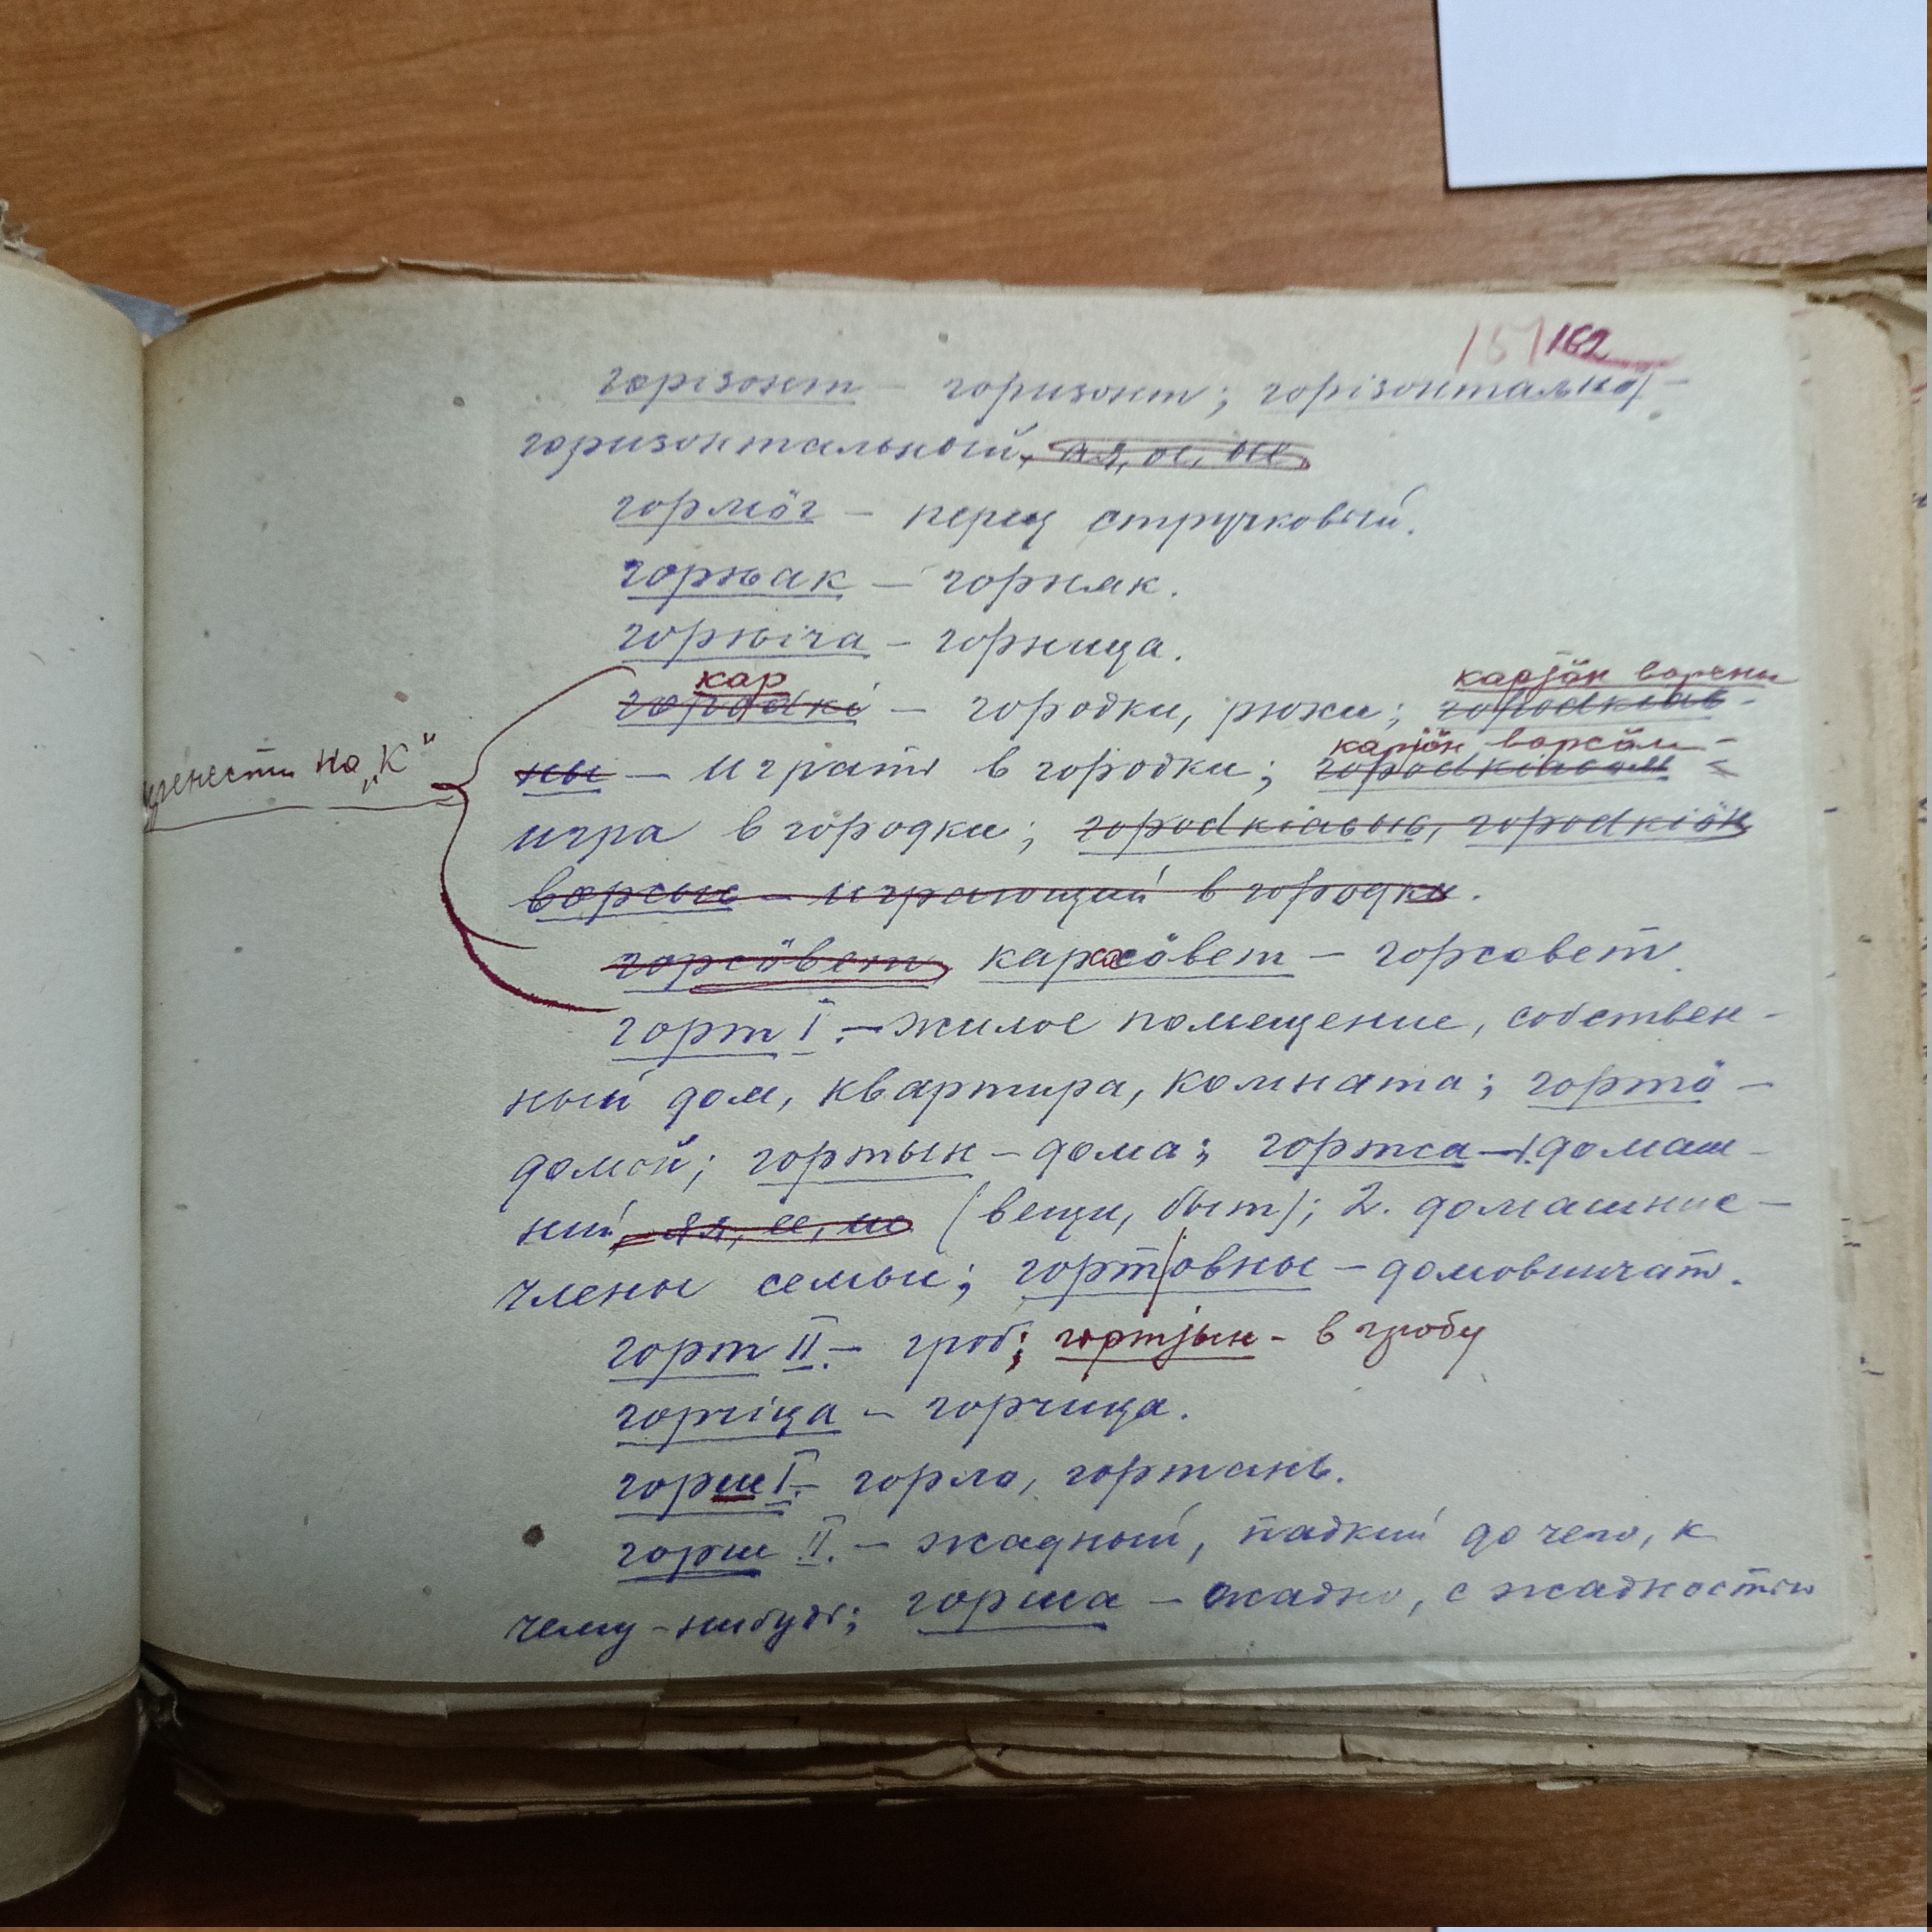 162
горізонт – горизонт; горізонтальноj –
горизонтальный, ая, ое, ые.
гормӧг – перец стручковый.
горњак – горняк.
горњіча – горница.
кар карјӧн ворсны
городкі – городки, рюхи; городкіав-
ны – играть в городки; карјӧн ворсӧм –
игра в городки; городкіавыс, городкіӧн
ворсыс – играющий в городки.
горсӧвет карсӧвет – горсовет.
перенести на „К“
горт I. – жилое помещение, собствен-
ный дом, квартира, комната; гортӧ –
домой; гортын – дома; гортса – 1. домаш-
ний, яя, ее, ие (вещи, быт); 2. домашние –
члены семьи; гортовны – домовничать.
горт II. – гроб; гортјын – в гробу
горчіца – горчица.
горш I. – горло, гортань.
горш II. – жадный, падкий до чего, к
чему-нибудь; горша – жадно, с жадностью